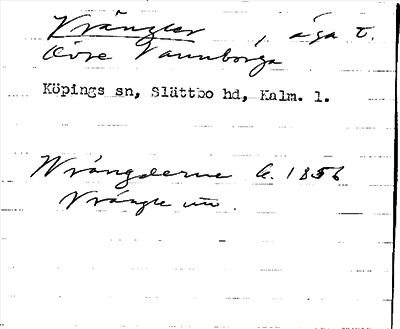 Vrängler, äga t.
Övre Vannborga
Köpings sn, Slättbo hd, Kalm. l.
Wrångderne G. 1856
Vrångle um.